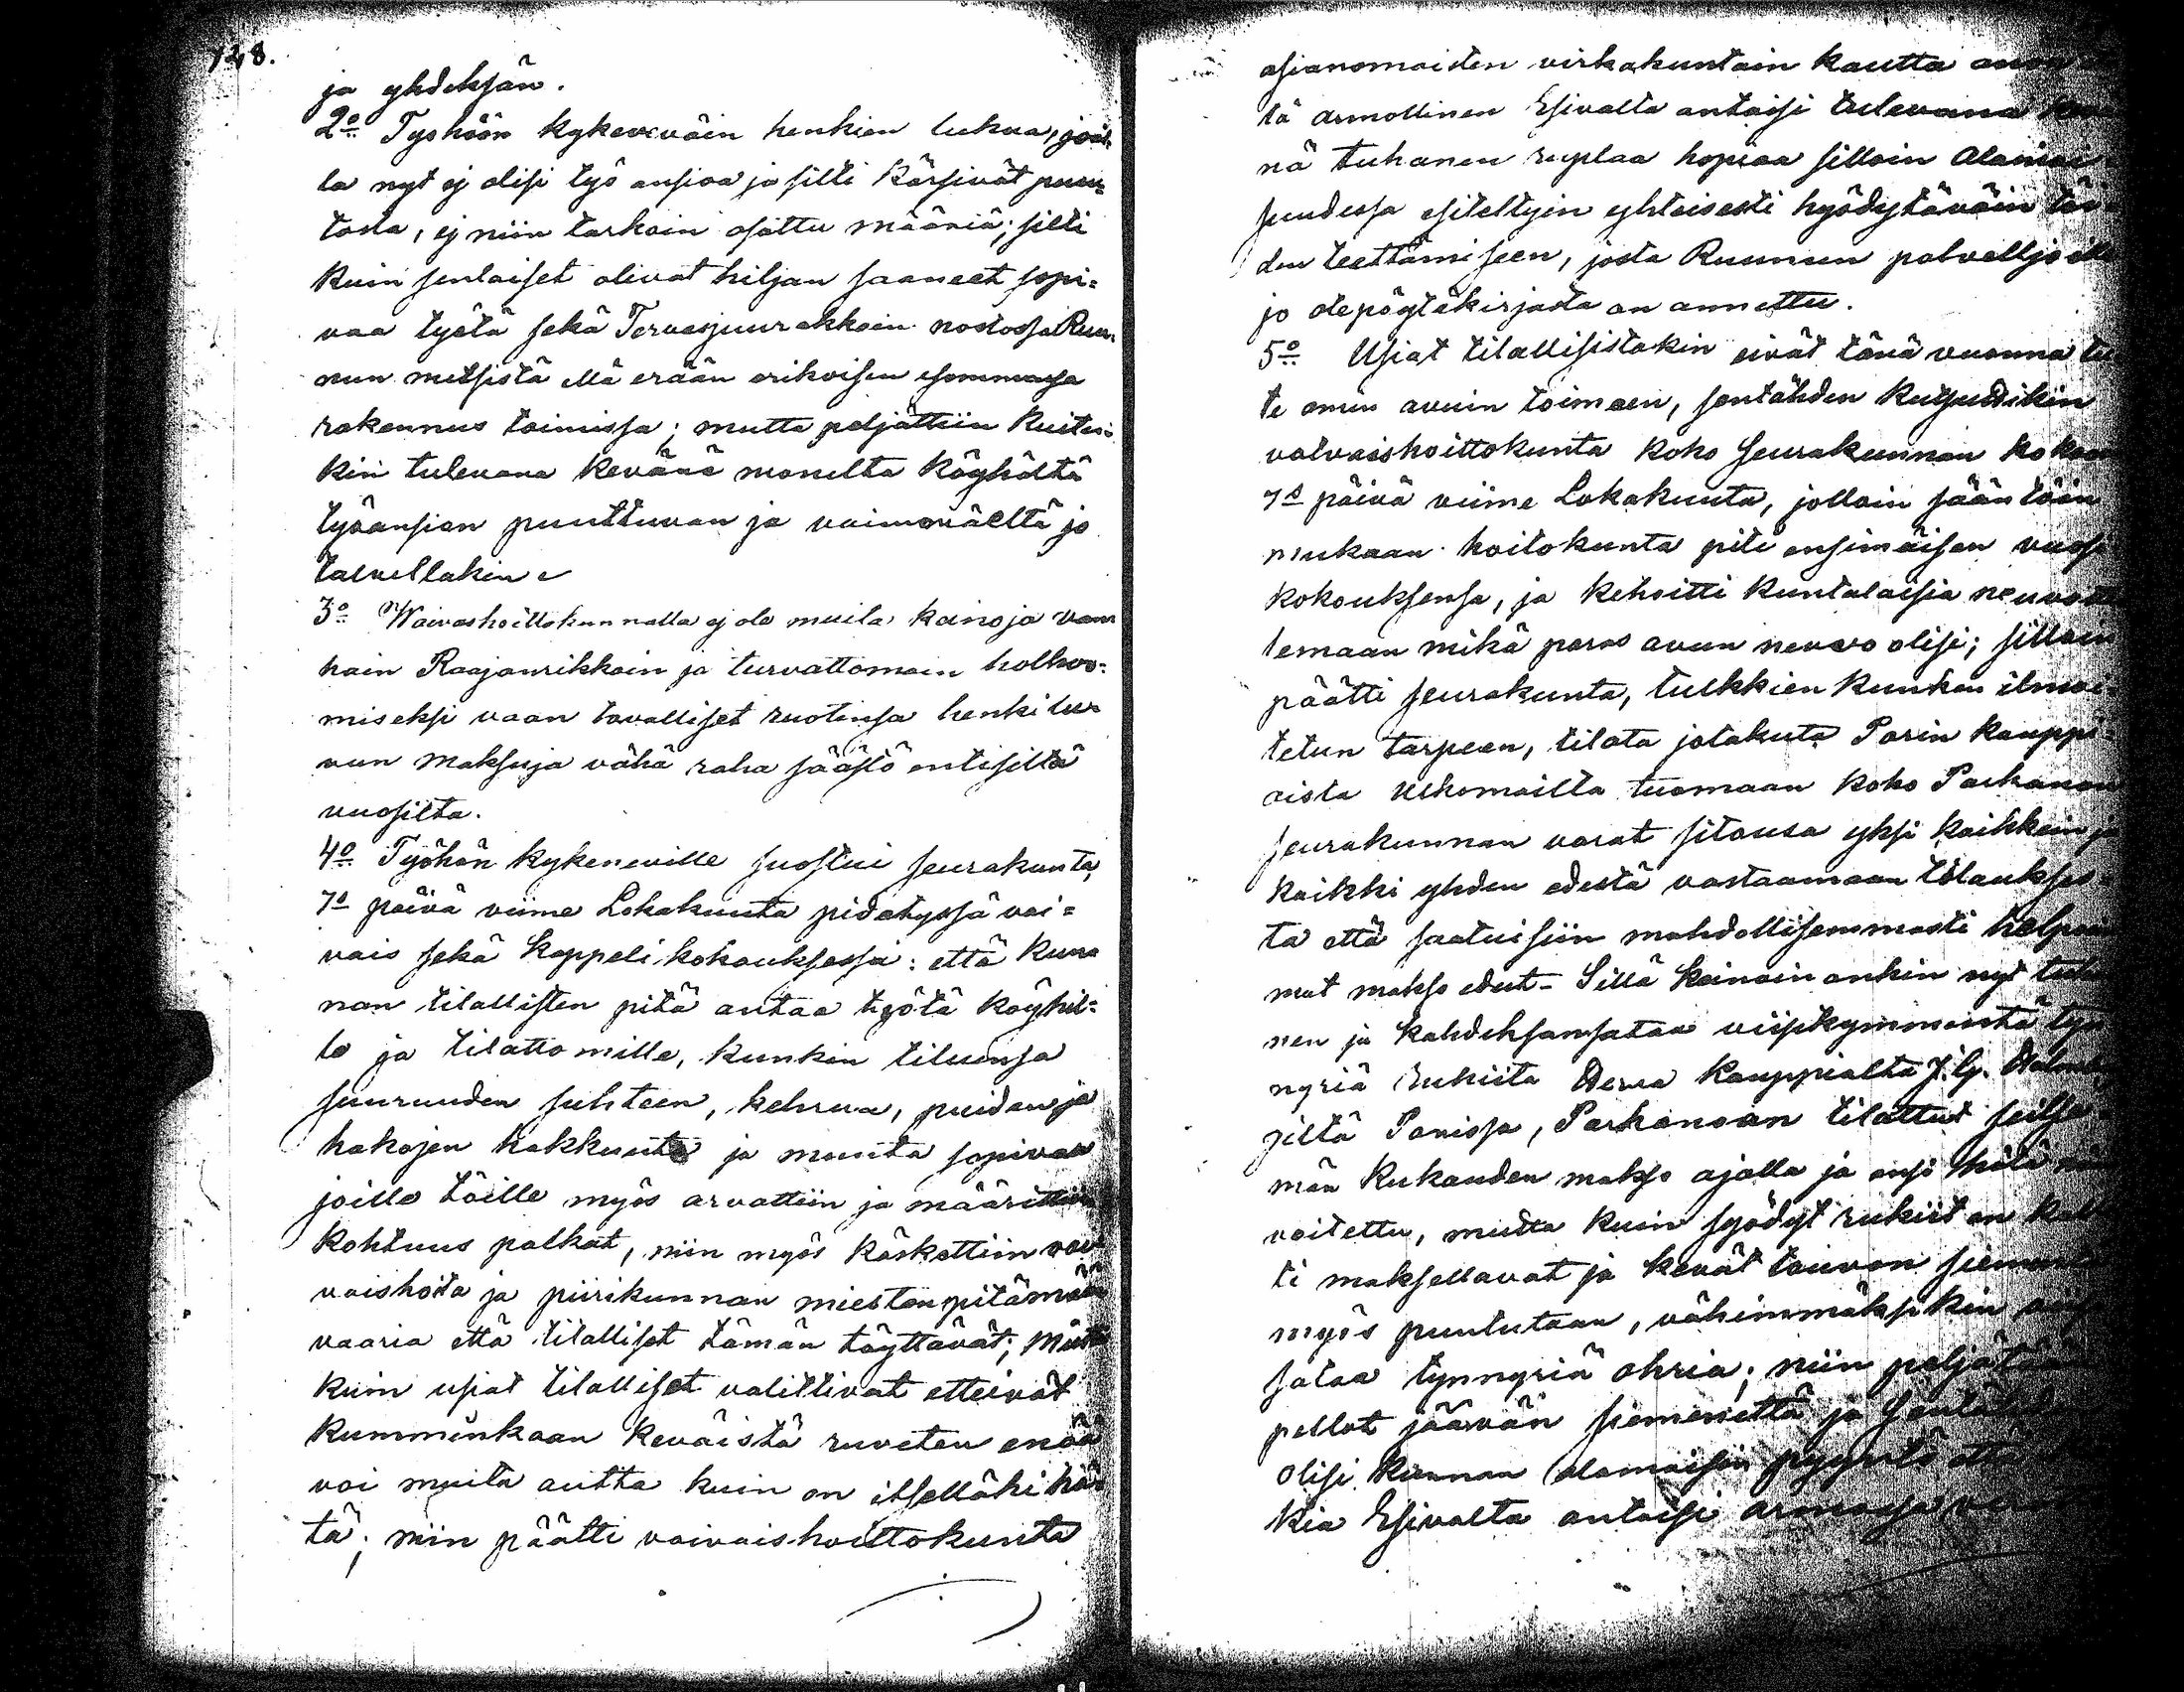 128.
ja yhdeksän.
2o Työhön kykeneväin henkien lukua, joil=
la nyt ej olisi työ ansioa ja silti kärsivät puu=
tosta, ej niin tarkoin osattu määriä; silti
kuin senlaiset olivat hiljan saaneet sopi=
vaa työtä sekä Tervasjuurakkoin nostossa Ruu=
nun metsistä että erään erikoisen
rakennus toimissa; mutta peljättiin kuiten=
kin tulevana kevänä monelta köyhältä
työansion puuttuvan ja vaimoväeltä jo
talvellakin
3o Waivashoittokunnalla ej ole muita keinoja van
hain Raajanrikkoin ja turvattomain holhoo=
miseksi vaan tavalliset ruotinsa henki lu
vun maksuja vähä raha säästö entisiltä
vuosilta.
4o Työhön kykeneville suostui seurakunta
7ä päivä viime Lokakuuta pidetyssä vai=
vais sekä kappeli kokouksessa: että kun
nan tilallisten pitä antaa työtä köyhil=
le ja tilattomille, kunkin tiluensa
suuruuden suhteen, kehruu, puiden ja
hakojen hakkuuta ja muuta sopivaa
joille töille myös arvattiin ja määrättiin
kohtuus palkat, niin myös käskettiin vai
vaishoito ja piirikunnan miesten pitämään
vaaria että tilalliset tämän täyttävät; Mutta
kuin usiat tilalliset valittivat etteivät
kumminkaan keväistä ruveten enää
voi muita autta kuin on itsellähi hä
tä; niin päätti vaivaishoittokunta
asianomaisten virkakuntain kautta anoa
tä armollinen Esivalta antaisi tulevana
nä tuhanen ruplaa hopiaa silloin Alamai
suudessa esiteltyin yhteisesti hyödytäväin töi
den teettämiseen, josta Ruunun palvelljoille
jo otepöytäkirjasta on annettu.
5o Usiat tilallisistakin eivät tänä vuonna tu
te omin avuin toimeen, sentähden kutsuttikin
vaivaishoittokunta koko seurakunnan kokoon
7ä päivä viime Lokakuuta, jolloin säännön
mukaan hoitokunta piti ensimäisen vuosi
kokouksensa, ja kehoitti kuntalaisia neuvot
lemaan mikä paras avun neuvo olisi; silloin
päätti seurakunta, tutkkien kunkin ilmoi
tetun tarpeen, tilata jotakuta Porin kauppi
aista ulkomailta tuomaan koko Parkanon
seurakunnan varat sitousa yksi kaikkein ja
kaikki yhden edestä vastaamaan tilaukses=
ta että saataisiin mahdollisemmasti helpoim
mat makso edut= Sillä keinoin onkin nyt tuha
nen ja kahdeksansataa viisikymmentä tyn
nyriä rukiita Herra kauppialta J. G.
piltä Porissa, Parkanoon tilattut seitse
män kukauden makso ajalla ja ensi hätä nin
voitettu, mutta kuin syödyt rukiit on kal
ti maksellavat ja kevät touvon siemeniä
myös puututaan, vähimmäksikin
sataa tynnyriä ohria; niin peljätään
pellot jäävän siemenettä ja sentäh
olisi kunnan alamaisin pyyntö että
kia Esivalta antaisi armossa